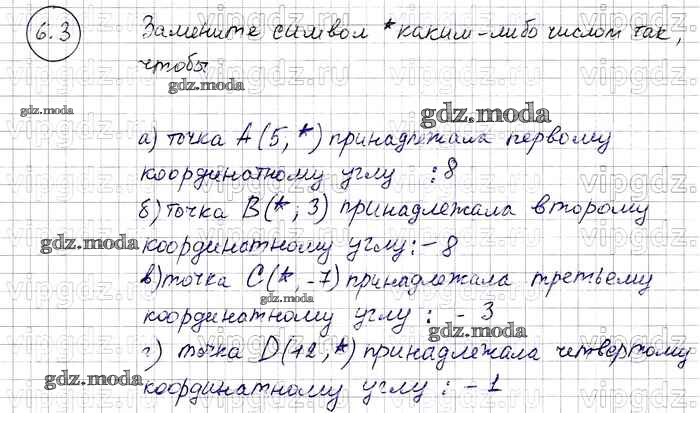 6.3 Замените символ * каким-либо числом так,
чтобы
gdz.moda
gdz.moda
gdz.moda
а) точка A(5, *) принадлежала первому
координатному углу : 8
б) точка B(*; 3) принадлежала второму
gdz.moda
координатному углу: - 8
в) точка C(*, -7) принадлежала третьему
gdz.moda
координатному углу : - 3
gdz.moda
г) точка D(12, *) принадлежала четвертому
gdz.moda
координатному углу : - 1